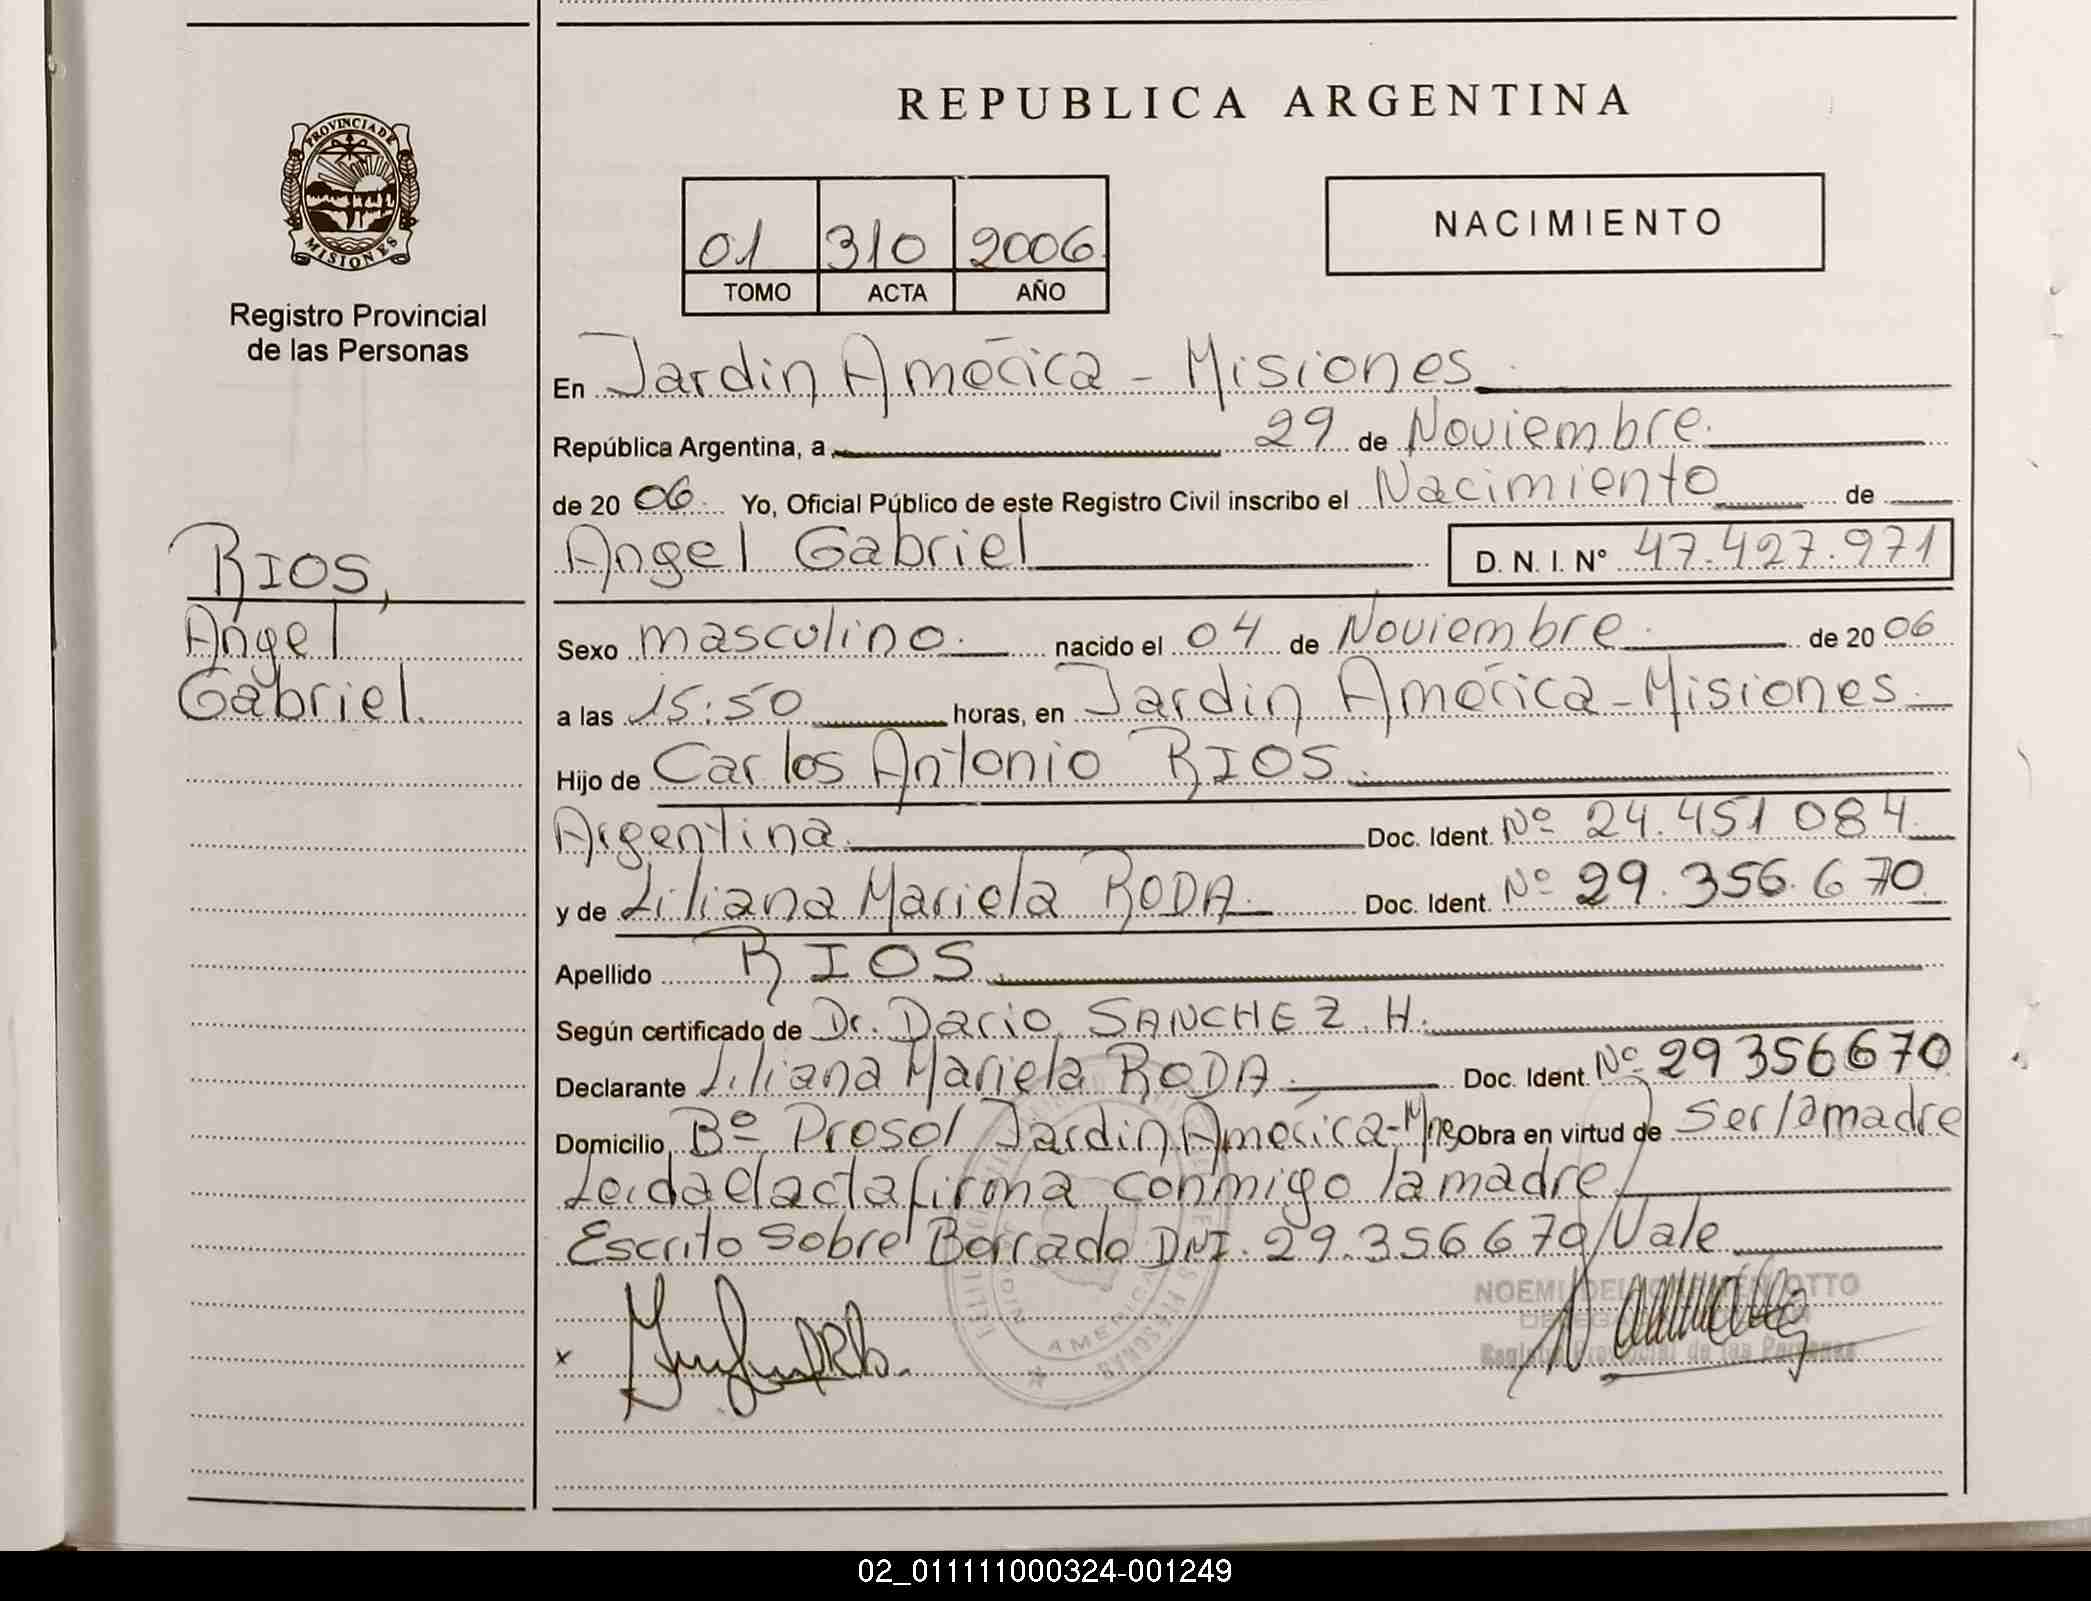 REPUBLICA ARGENTINA
PROVINCIA DE
MISIONES
Registro Provincial
de las Personas
01 310 2006
TOMO ACTA AÑO
NACIMIENTO
En Jardin América - Misiones
República Argentina, a 29 de Noviembre
de 20 06 Yo, Oficial Público de este Registro Civil inscribo el Nacimiento de
Angel Gabriel D. N. I. N° 47.427.971
RIOS,
Angel
Gabriel
Sexo masculino nacido el 04 de Noviembre de 20 06
a las 15:50 horas, en Jardin América - Misiones
Hijo de Carlos Antonio RIOS
Argentina Doc. Ident. Nº 24.451 084
y de Liliana Mariela RODA Doc. Ident. Nº 29.356.670
Apellido RIOS
Según certificado de Dr. Dario SANCHEZ. H.
Declarante Liliana Mariela RODA Doc. Ident. Nº 29 356670
Domicilio Bº Prosol Jardin América-Mnes Obra en virtud de Ser la madre
Leida el acta firma conmigo la madre
Escrito sobre Borrado DNI. 29.356670 / Vale
NOEMI DEL CARMEN OTTO
Registro Provincial de las Personas
AMERICA
02_011111000324-001249